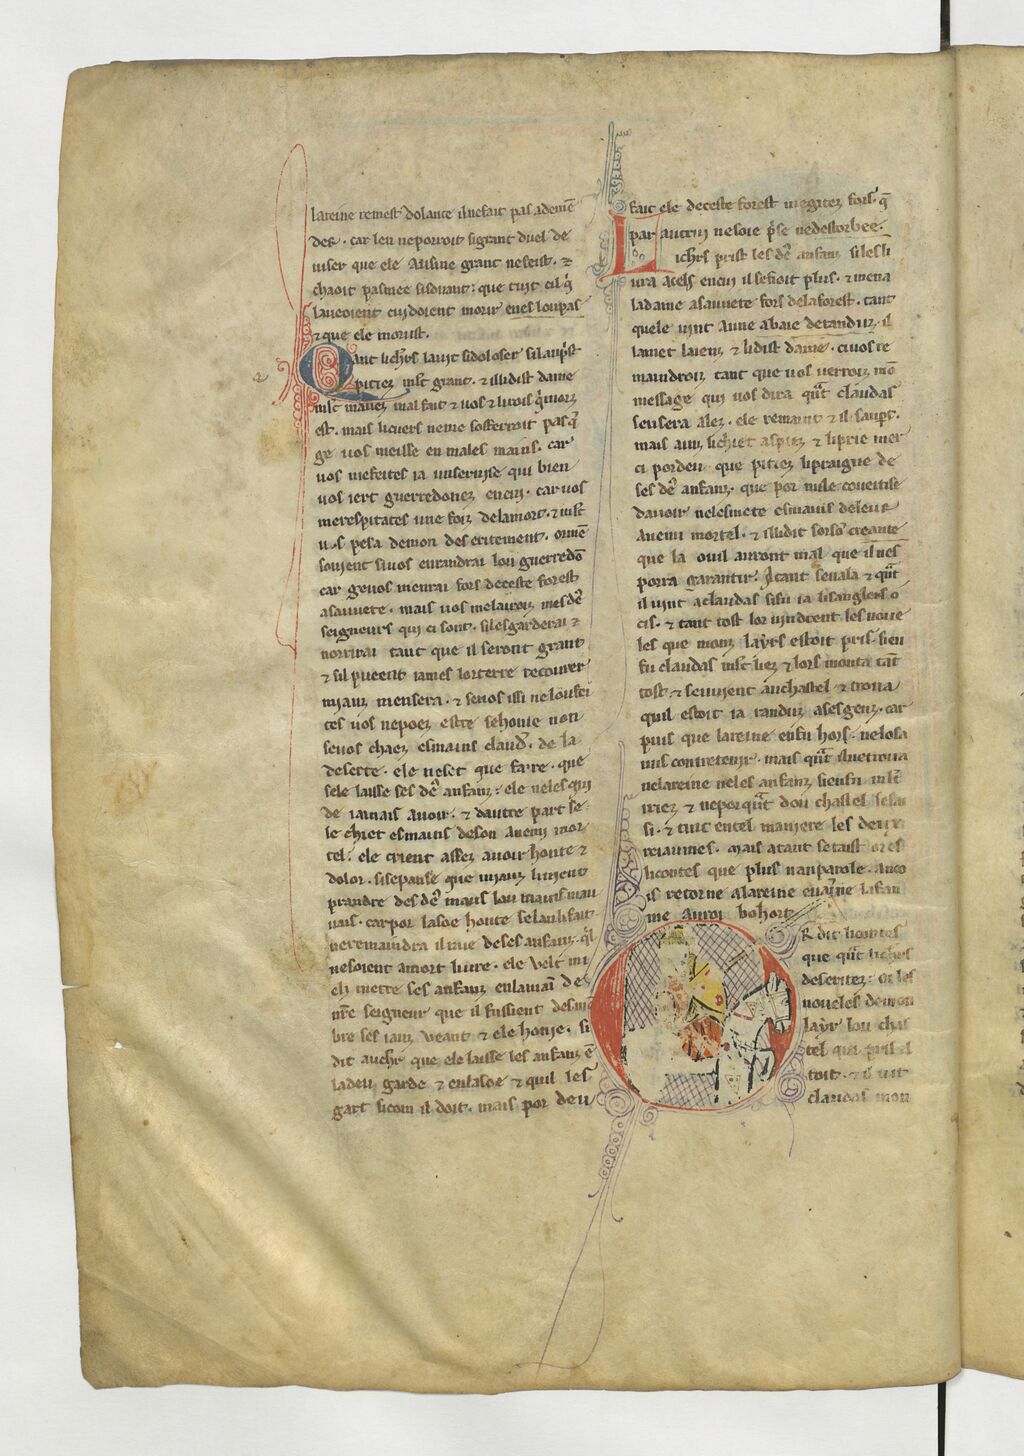 lareine remest dolante il nefait pas ademē
der. car len neporroit sigrant duel de
uiser que ele ausine grant nefeist. ⁊
chaoit pasmee sisouant: que tuit cil q̓
laueoient cuidoient morir enesloupas
⁊ que ele morust.
Qant lich'rs lauit sidoloser silanp̓st
pitiez m̓lt grant. ⁊ illidist dame
m̓lt mauez mal fait ⁊ uos ⁊ lirois q̓ morz
est. mais licuers neme sofferroit pas q̓
ge uos meisse en males mains. car
uos mefeites ia unseruise qui bien
uos iert guerredonez encui. car uos
merespitates une foiz delamort. ⁊ m̓lt
uos pesa demon deseritement. ormē
souient siuos enrandrai lou guerredō
car geuos menrai fors deceste forest
asauuete. mais uos melairoiz mes de᷑
seigneurs qui ci sont. silesgarderai ⁊
norrirai tant que il seront grant
⁊ sil pueent iames lorterre recourer
mianz mensera. ⁊ seuos issi nelou
tes uos nepoez estre sehonie non
seuos chaez esmains claud'. de la
deserte. ele neset que faire. que
sele laisse ses de᷑ anfanz: ele neles qui
de iamais auoir. ⁊ dautre part se
le chiet esmains deson anemi mor
tel: ele crient assez auoir honte ⁊
dolor. sisepanse que mianz liuient
prandre des de᷑ maus lou mains mau
uais. car por lasoe honte selanlifait
neremaindra il mie deses anfanz. q̓l
nesoient amort liure. ele uelt mi
elz metre ses anfanz enlamain de
nr̄e seigneur que il fussient desmē
bre ses iauz ueant ⁊ ele honie. si
dit auch'r que ele laisse les anfanz ē
ladeu garde ⁊ enlasoe ⁊ quil les
gart sicom il doit. mais por deu
fait ele deceste forest megitez fors. q̄
par autrui nesoie p̓se nedestorbee.
Lich'rs prist les de᷑ anfanz siles li
ura acels encui ilsefioit plus. ⁊ mena
ladame asauuete fors delaforest. tant
quele uint aune abaie denandunz. il
lamet laienz ⁊ lidist dame. ci uos re
maindroiz tant que uos uerroiz mō
message qui uos dira qāt claudas
sensera alez. ele remaint ⁊ il sanp̓t.
mais anz lichiet aspiez ⁊ liprie mer
ci pordeu que pitiez lipraigne de
ses de᷑ anfanz. que por nule coueitise
dauoir nelesmete esmains deleur
anemi mortel. ⁊ illidit sorso creante
que la ouil auront mal que il nes
porra garantir. Atant senala ⁊ qāt
il uint aclaudas sifu ia lisanglers o
cis. ⁊ tant tost lor uindrent les noue
les que monz layrs estoit pris. sien
fu claudas m̓lt liez ⁊ lors monta tāt
tost ⁊ senuient auchastel ⁊ troua
quil estoit ia randuz asesgenz. car
puis que lareine enfu hors. nelosa
nus contretenir. mais qāt ilnetroua
nelareine neles anfanz sienfu m̓lt
iriez ⁊ neporqāt dou chastel sesai
si. ⁊ tint entel maniere les deux
reiaumes. Mais atant setaist ores
licontes que plus nanparole. anco
is retorne alareine
me auroi bohort
R dit licontes
que qāt lich'rs
deseritez ot les
noueles demon
layr lou chas
tel qui pris e
toit. ⁊ il uit
claudas mon